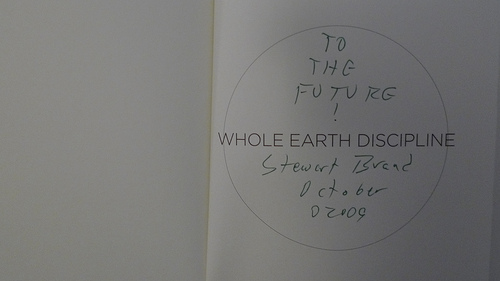 TO
THE
FUTURE
!
WHOLE EARTH DISCIPLINE
Stewart Brand
October
02009